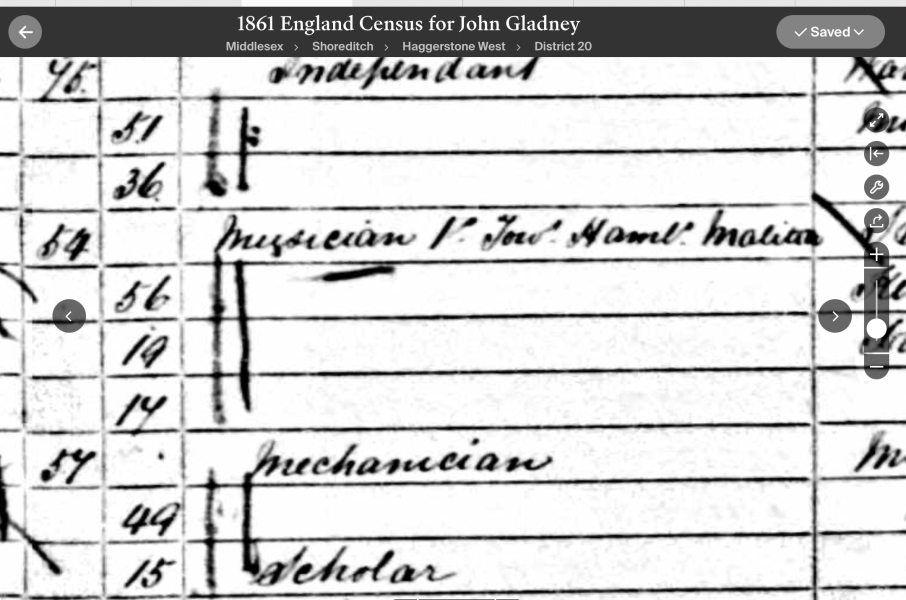 1861 England Census for John Gladney
Middlesex > Shoreditch > Haggerstone West > District 20
Saved
75 Independant
51
36
54 Musician 1st Towr. Hamlt. Malitia
56
19
17
57 Mechanician M
49
15 Scholar